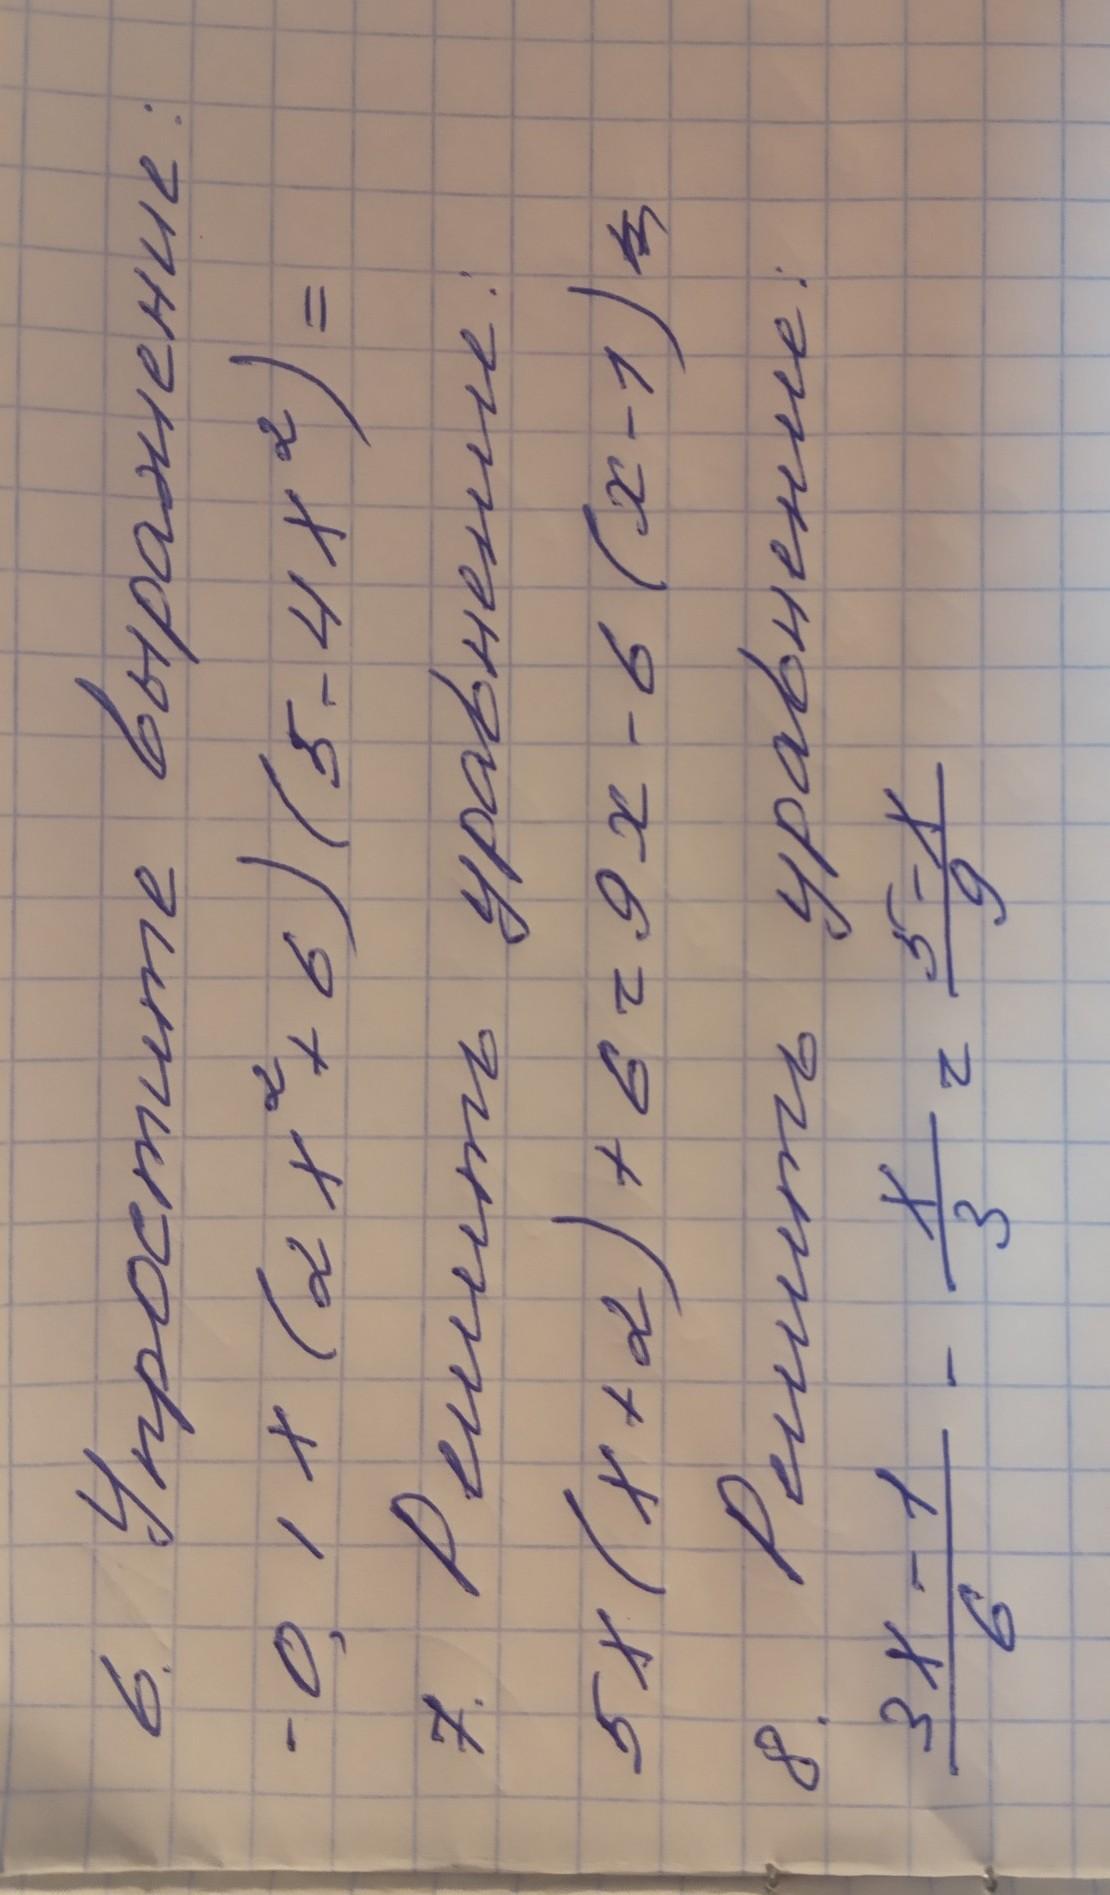 6. Упростите выражение:
-0,1x(2x²+6)(5-4x²)=
7. Решить уравнение:
5x(x+2)+6=9x-6(x-1)
8. Решить уравнение:
\frac{3x-1}{6} - \frac{x}{3} = \frac{5-x}{9}